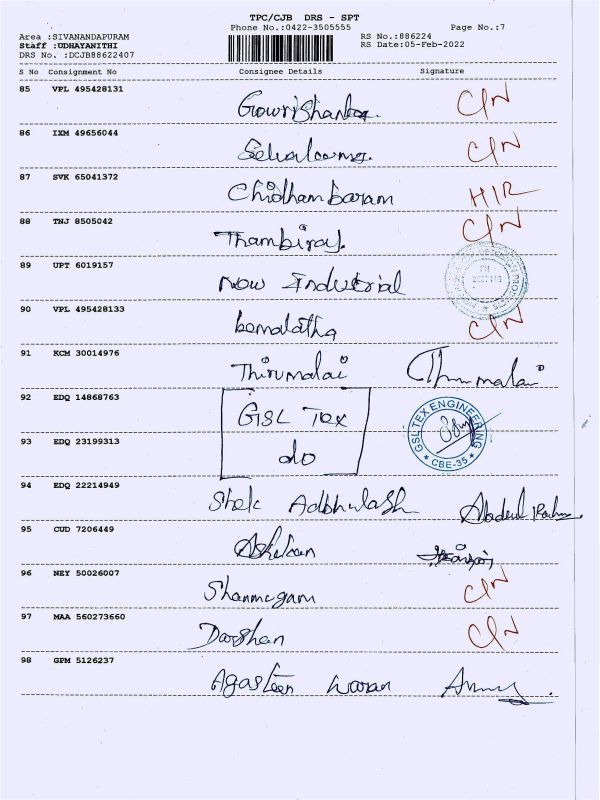 TPC/CJB DRS - SPT
Phone No.:0422-3505555 Page No.:7
Area :SIVANANDAPURAM RS No.:886224
Staff :UDHAYANITHI RS Date:05-Feb-2022
DRS No. :DCJB88622407
S No Consignment No Consignee Details Signature
85 VPL 495428131
Gowrishankar. C/N
86 IXM 49656044
Selvakumar. C/N
87 SVK 65041372
Chidhambaram H/R
88 TNJ 8505042 C/N
Thambiraj.
89 UPT 6019157
New Industrial
90 VPL 495428133
C/N
91 KCM 30014976
Thirumalai Thirumalai
92 EDQ 14868763
GSL Tex GSL TEX ENGINEERING
93 EDQ 23199313
do * CBE-35 *
94 EDQ 22214949
95 CUD 7206449
96 NEY 50026007
Shanmugam C/N
97 MAA 560273660
Darshan C/N
98 GPM 5126237